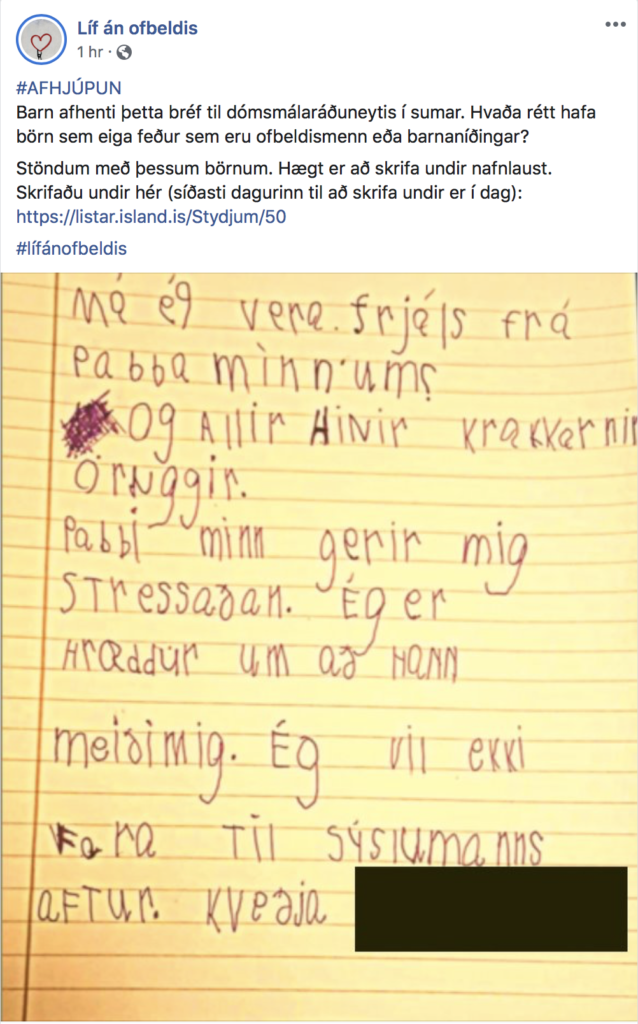 Líf án ofbeldis
1 hr ·
#AFHJÚPUN
Barn afhenti þetta bréf til dómsmálaráðuneytis í sumar. Hvaða rétt hafa
börn sem eiga feður sem eru ofbeldismenn eða barnaníðingar?
Stöndum með þessum börnum. Hægt er að skrifa undir nafnlaust.
Skrifaðu undir hér (síðasti dagurinn til að skrifa undir er í dag):
https://listar.island.is/Stydjum/50
#lífánofbeldis
Má ég vera. frjáls frá
Pabba mìnn'um?
Og Allir Hinir krakkarnir
Öruggir.
Pabbi minn gerir mig
Stressaðan. Ég er
Hræddur um að Hann
meiðimig. Ég vil ekki
Fara Til Sýslumanns
aftur. kveðja